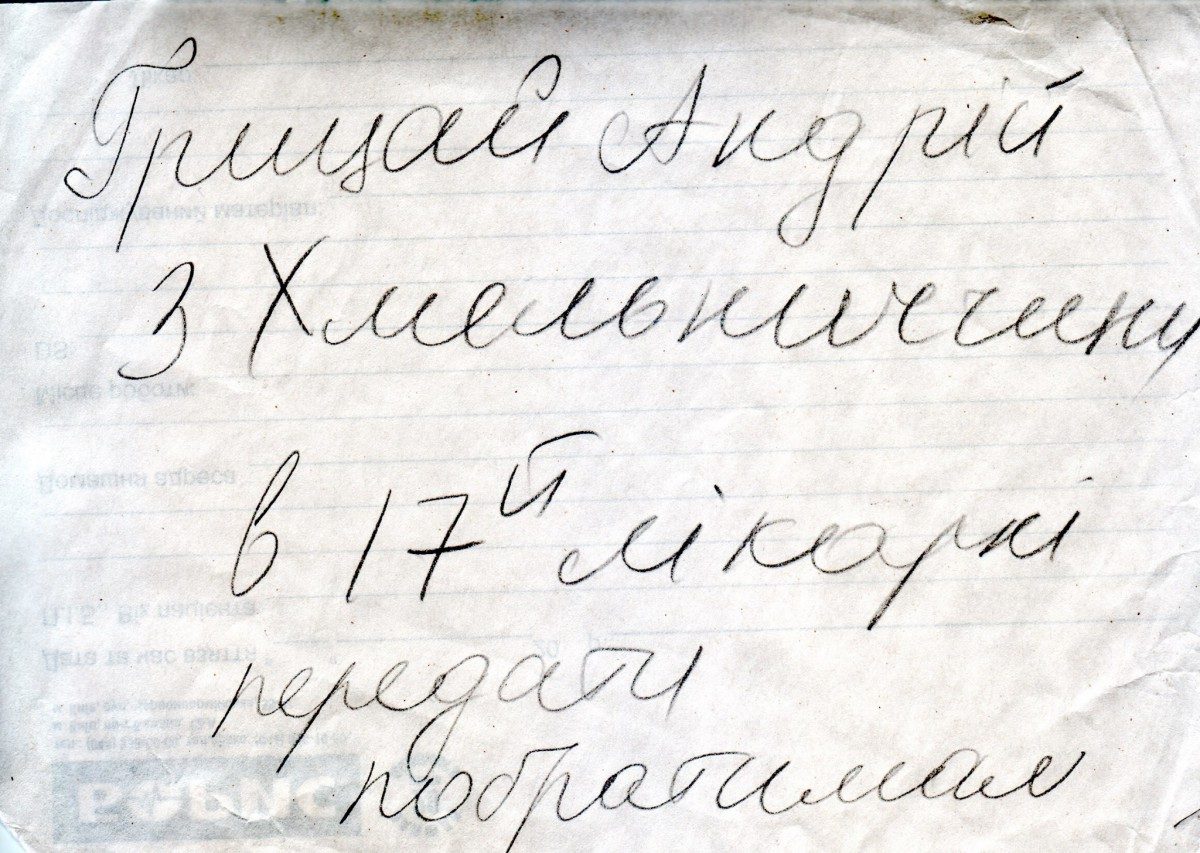 Грицай Андрій
з Хмельниччини
в 17й лікарні
передати
побратимам